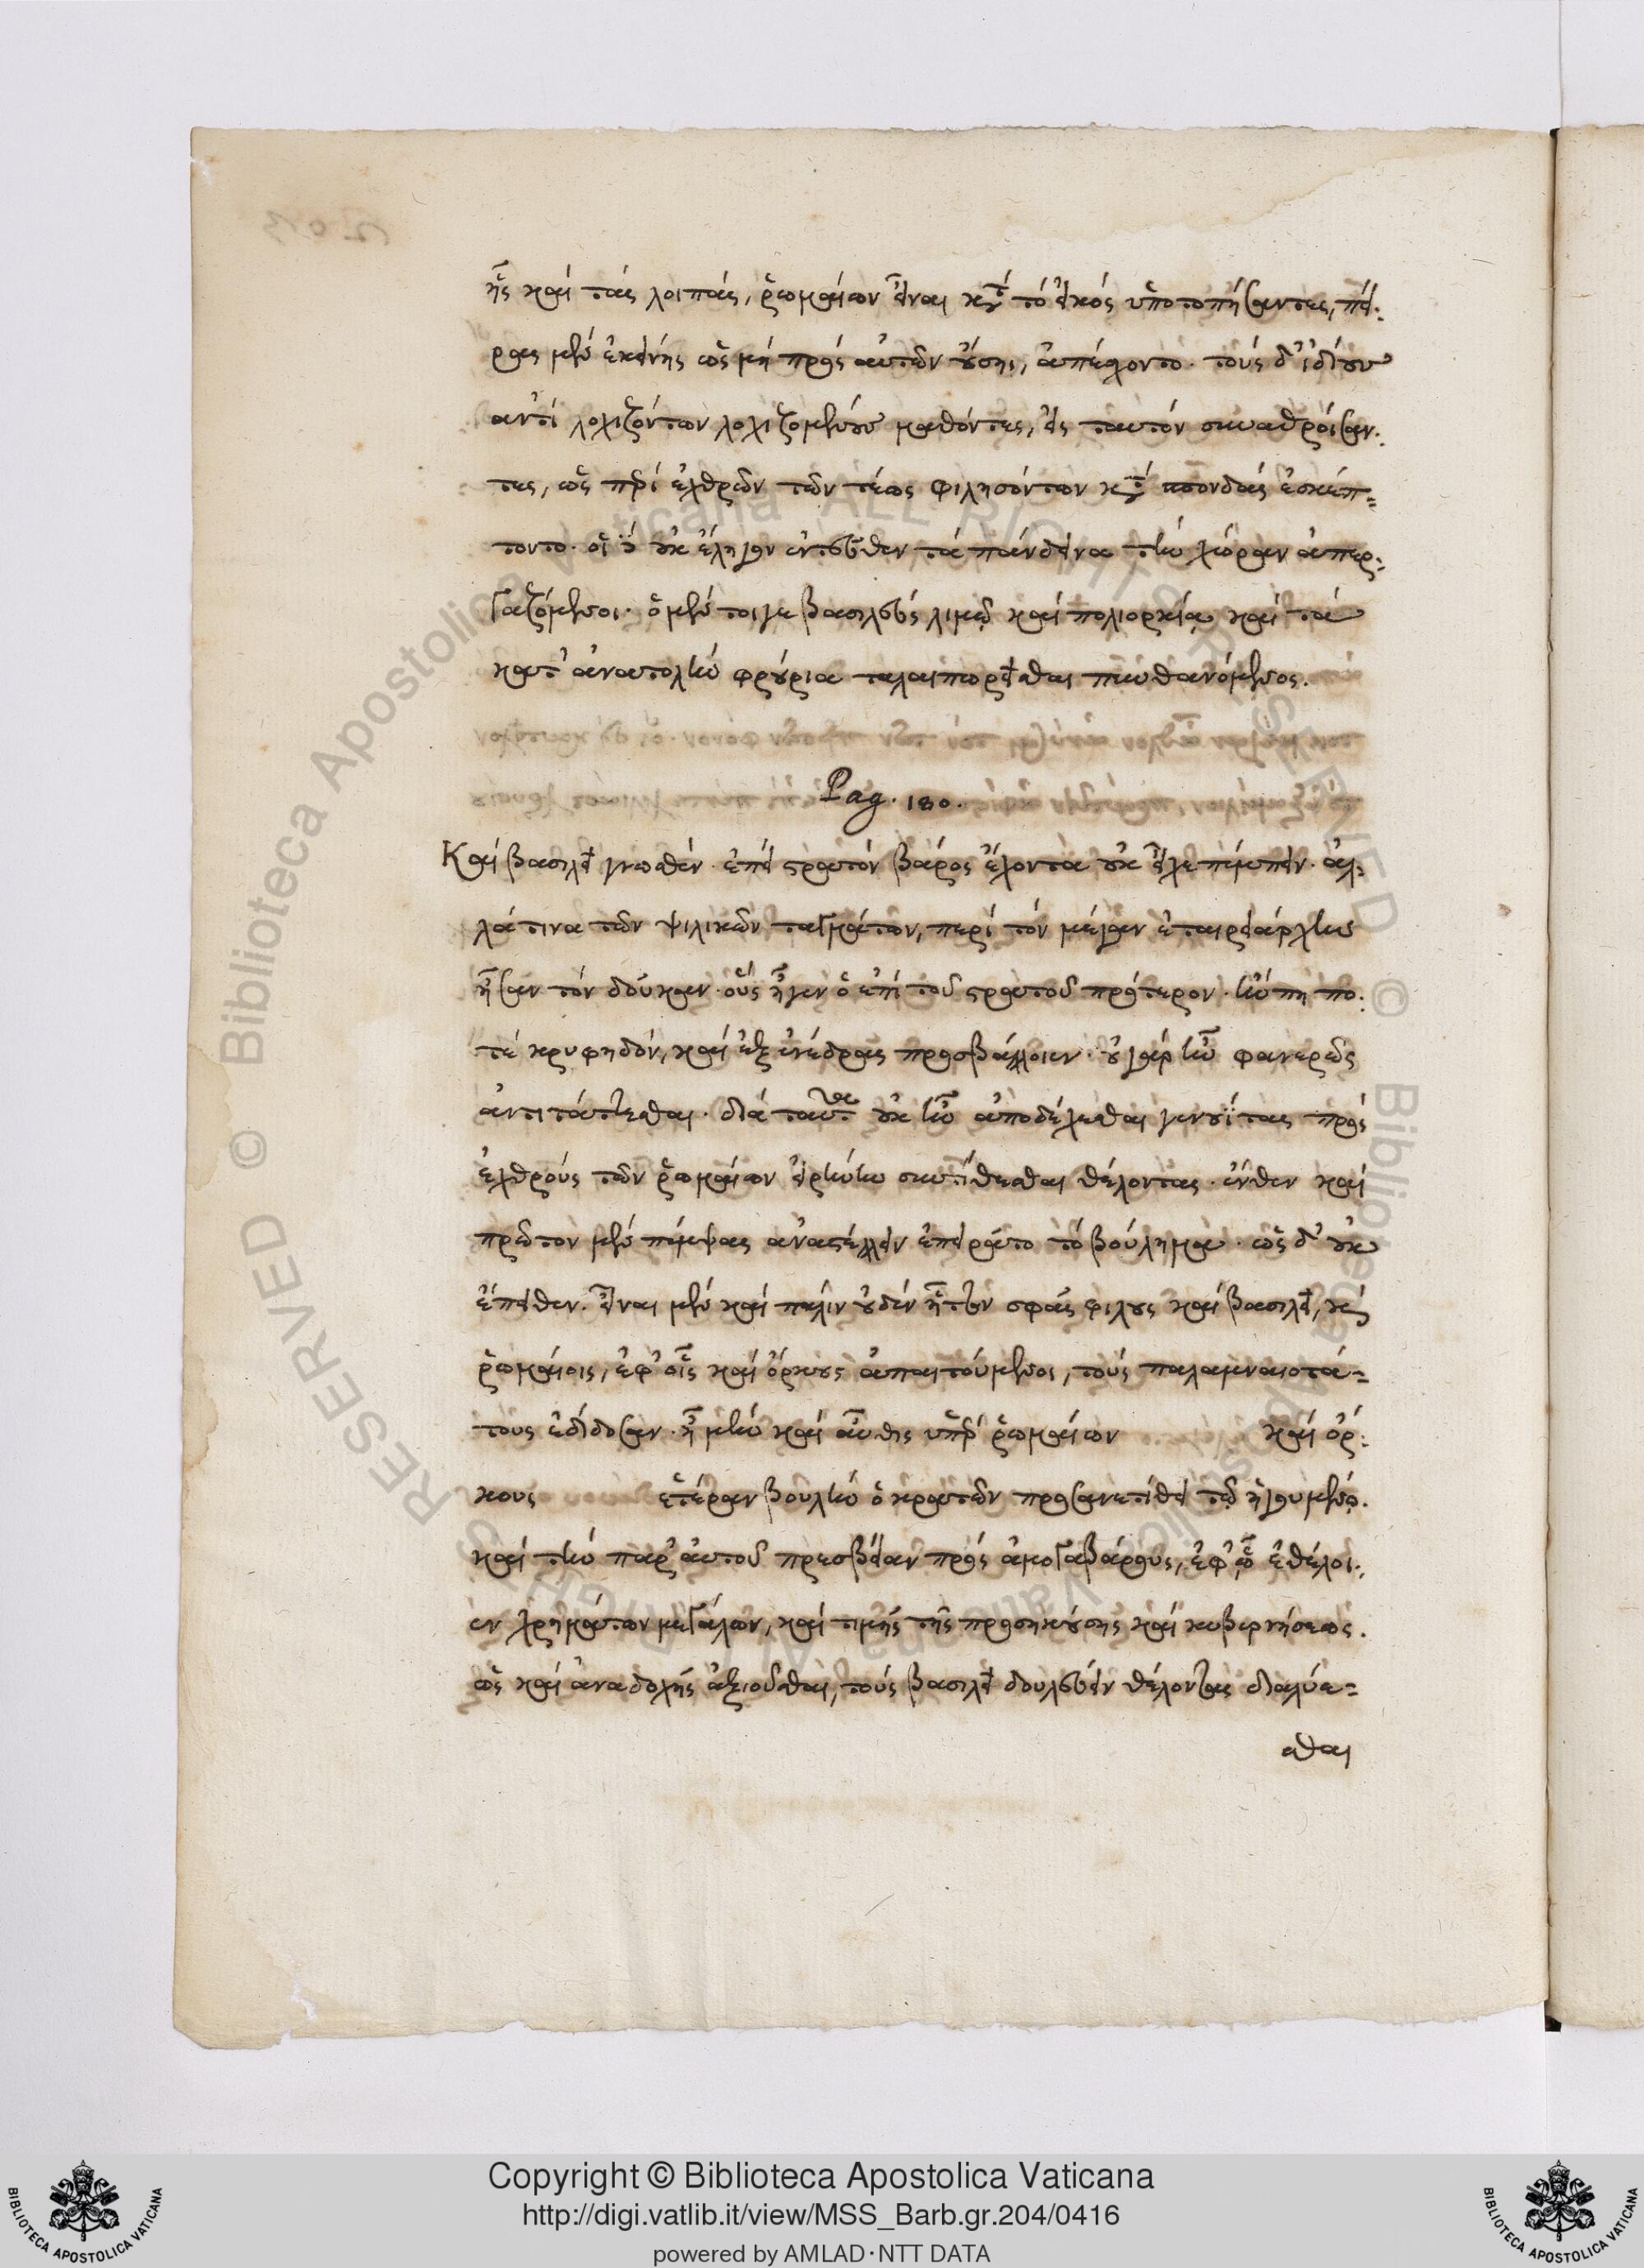 ἧς καὶ τὰς λοιπὰς, ῥωμαίων εἶναι κατὰ τὸ εἰκὸς ὑποτοπήσαντες, πεί-
ρας μὲν ἐκείνης ὡς μὴ πρὸς αὐτῶν οὔσης, ἀπέσχοντο. τοὺς δ' ἰδίους
ἀντὶ λογιζόντων λογιζομένους μαθόντες, εἰς ταυτὸν συναθροίσαν-
τες, ὡς περὶ ἐχθρῶν τῶν τέως φιλησόντων κατὰ σπονδὰς ἐσκέπ-
τοντο. οἱ δὲ οὐκ ἔληγον ἐντεῦθεν τὰ πάνδεινα τὴν χώραν ἀπερ-
γαζόμενοι. ὁ μέν τοιγε βασιλεὺς λιμῷ καὶ πολιορκίᾳ καὶ τὰ
κατ' ἀνατολὴν φρούρια ταλαιπωρεῖσθαι πυνθανόμενος.
Pag. 180.
Καὶ βασιλεῖ γνωσθὲν. ἐπεὶ στρατὸν βάρος ἔχοντα οὐκ εἶχε πέμπειν. ἀλ-
λά τινα τῶν ψιλικῶν ταγμάτων, περὶ τὸν μέγαν ἑταιρειάρχην
ἦσαν τὸν δούκαν. οὓς ἦγεν ὁ ἐπὶ τοῦ στρατοῦ πρότερον. ἤν πη πο-
τὲ κρυφηδὸν, καὶ ἐξ ἐνέδρας προσβάλλοιεν. οὐ γὰρ ἦν φανερῶς
ἀντιτάττεσθαι. διὰ ταῦτα οὐκ ἦν ἀποδέχεσθαι γενουίτας πρὸς
ἐχθροὺς τῶν ῥωμαίων εἰρήνην συντίθεσθαι θέλοντας. ἔνθεν καὶ
πρῶτον μὲν πέμψας ἀναστέλλειν ἐπειρᾶτο τὸ βούλημα. ὡς δ' οὐκ
ἔπειθεν. εἶναι μὲν καὶ πάλιν οὐδὲν ἧττον σφᾶς φίλους καὶ βασιλεῖ, καὶ
ῥωμαίοις, ἐφ' οἷς καὶ ὅρκους ἀπαιτούμενοι, τοὺς παλαμναιοτά-
τους ἐδίδοσαν. ἦ μὴν καὶ αὖθις ὑπὲρ ῥωμαίων καὶ ὅρ-
κους ἑτέραν βουλὴν ὁ κρατῶν προσανετίθει τῷ ἡγουμένῳ.
καὶ τὴν παρ' αὐτοῦ πρεσβείαν πρὸς ἀμογαβάρους, ἐφ' ᾧ ἐθέλοι-
εν χρημάτων μεγάλων, καὶ τιμῆς τῆς προσηκούσης καὶ κυβερνήσεως.
ὡς καὶ ἀναδοχῆς ἀξιοῦσθαι, τοὺς βασιλεῖ δουλεύειν θέλοντας διαλύε-
σθαι
Copyright © Biblioteca Apostolica Vaticana
http://digi.vatlib.it/view/MSS_Barb.gr.204/0416
powered by AMLAD·NTT DATA